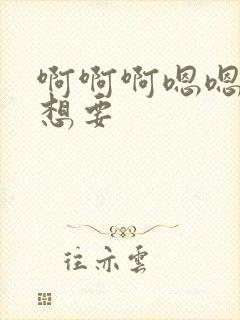 啊啊啊嗯嗯
想要
往亦雲